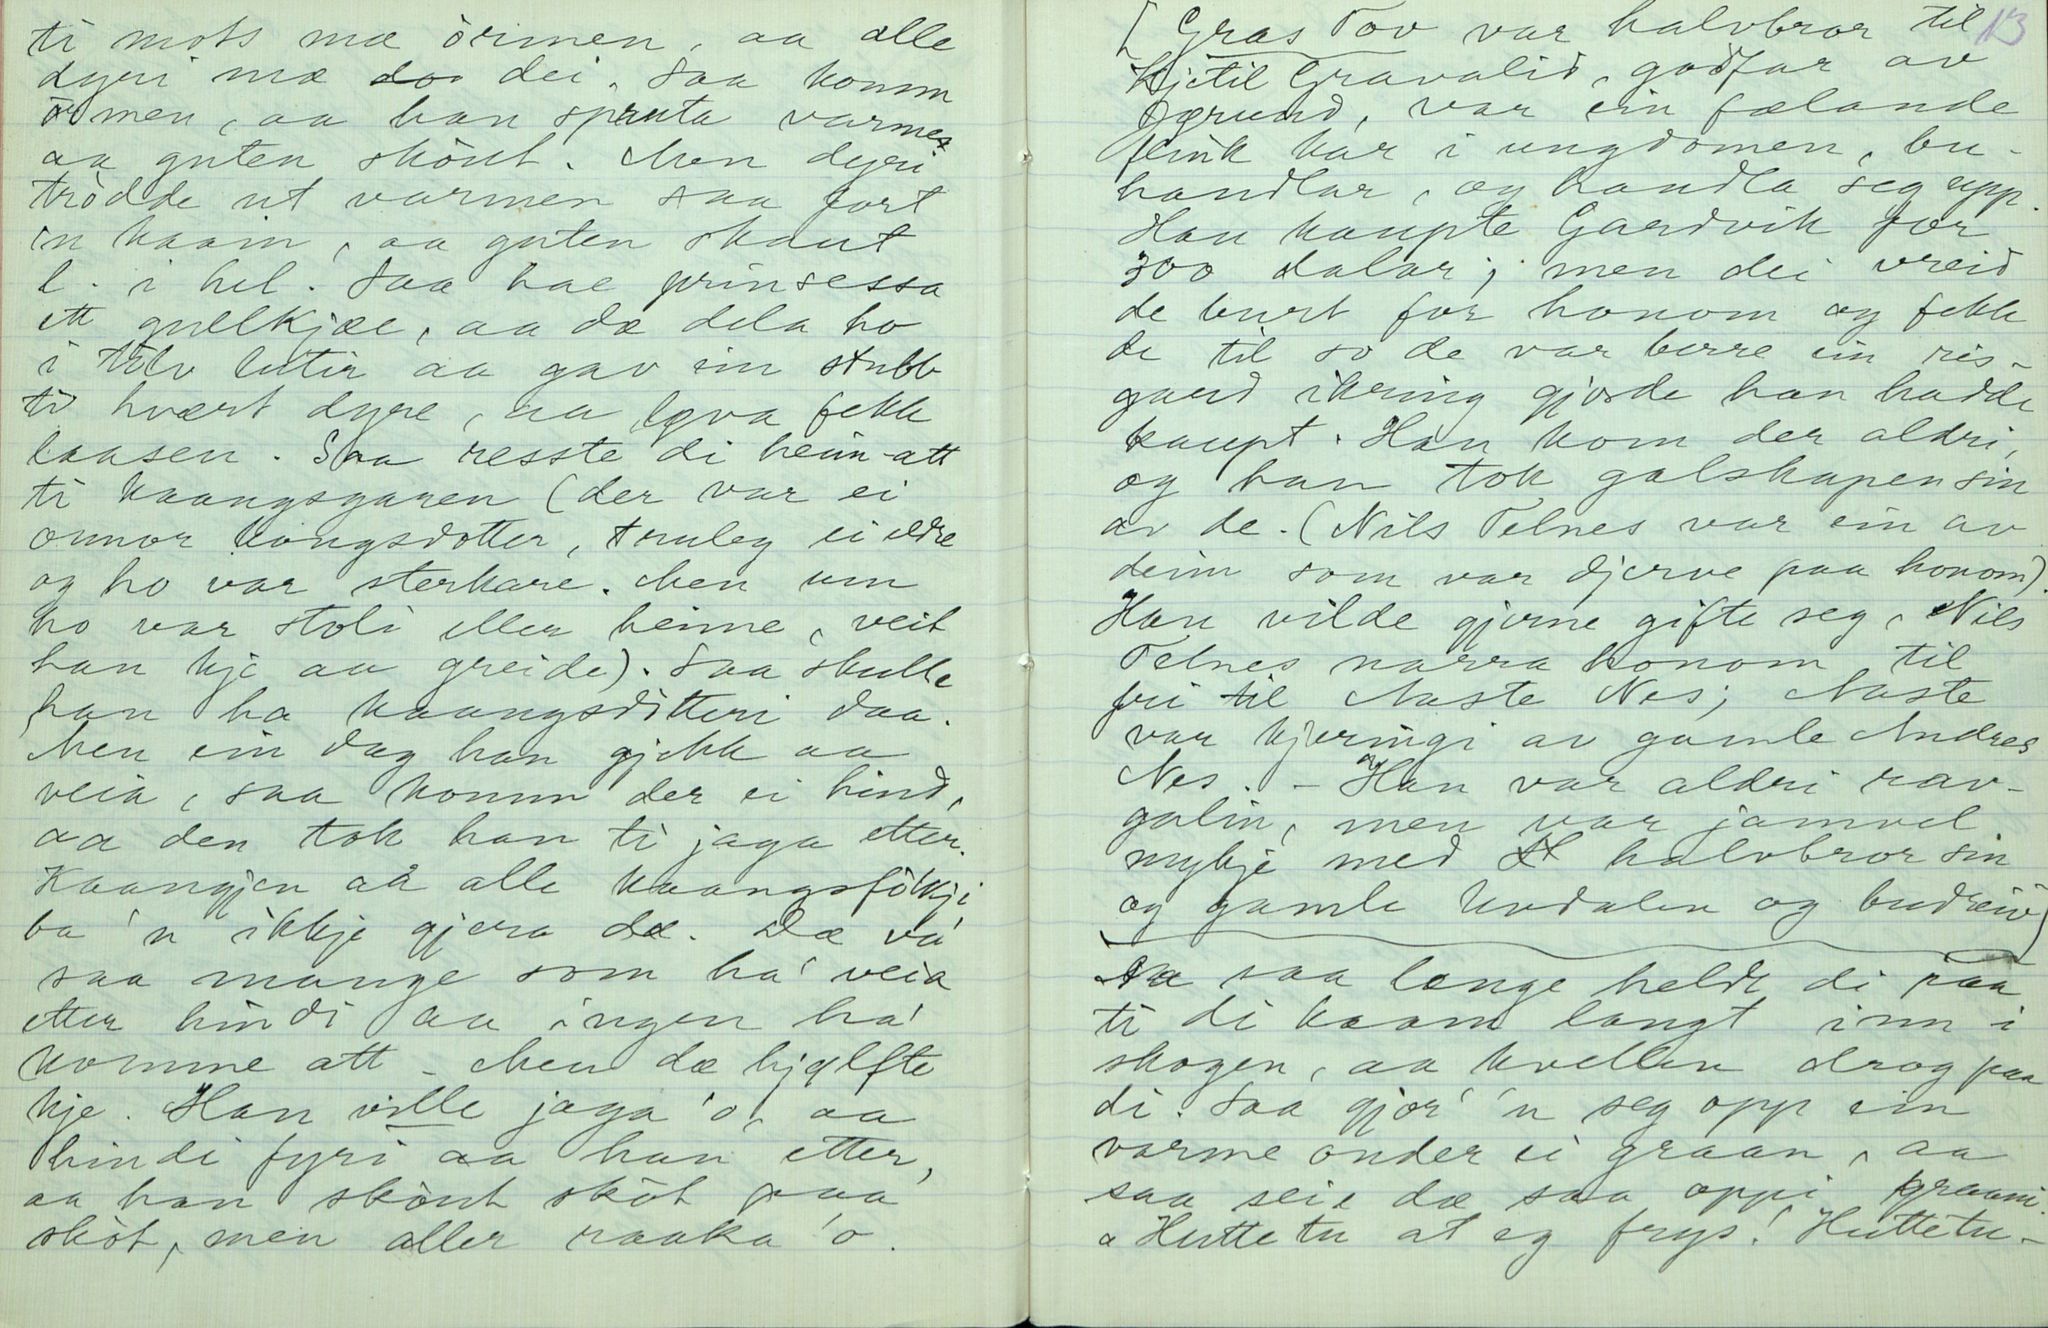 ti mots mæ örmen, aa alle
dyri mæ dei. Saa komm
örmen, aa han spruta varmen
aa guten skönt. Men dyri
trödde ut varmen saa fort
'n kaam, aa guten skaut
'l. i hel. Saa hae prinsessa
ett gullkjæe, aa dæ dela ho
i tolv lutir aa gav ein stubb
ti hvært dyre, aa løva fekk
laasen. Saa resste di heim-att
ti kaangsgaren (der var ei
onnor kongsdotter, truleg ei eldre
og ho var sterkare. Men um
ho var stoli eller heime, veit
han kje aa greide). Saa skulle
han ha kaangsditteri daa.
Men ein dag han gjekk aa
veia, saa komm der ei hind,
aa den tok han ti jaga etter.
Kaangjen aa alle kaangsfölkji
ba 'n ikkje gjera dæ. Dæ va'
saa mange som ha' veia
etter hindi aa ingen ha'
komme att - Men dæ hjælfte
kje. Han ville jaga 'o, aa
hindi fyri aa han etter,
aa han skönt sköt paa
sköt, men aller raaka 'o.
13
[Gras Tov var halvbror til
Kjetil Gravalid, godfar av
, var ein fælande
flink kar i ungdomen, bu-
handlar, og handla seg upp.
Han kaupte Gardvik for
300 dalar; men dei vreid
de burt for honom og fekk
de til so de var berre ein ris-
gard ikring gjorde han hadde
kaupt. Han kom der aldri,
og han tok galskapen sin
av de. (Nils Telnes var ein av
deim som var djerve paa honom).
Han vilde gjerne gifte seg, Nils
Telnes narra honom til
fri til Naste Nes; Naste
var kjeringi av gamle Andres
Nes. - Han var aldri rav-
galin, men var jamvel
mykje med halvbror sin
og gamle Uvdalen og budreiv]
saa længe heldt di paa
ti di kaam langt inn i
skogen, aa kvellen drog paa
di. Saa gjor' 'n seg opp ein
varme onder ei graan, aa
saa seie dæ saa oppi graani.
"Huttetu at eg frys! Huttetu-